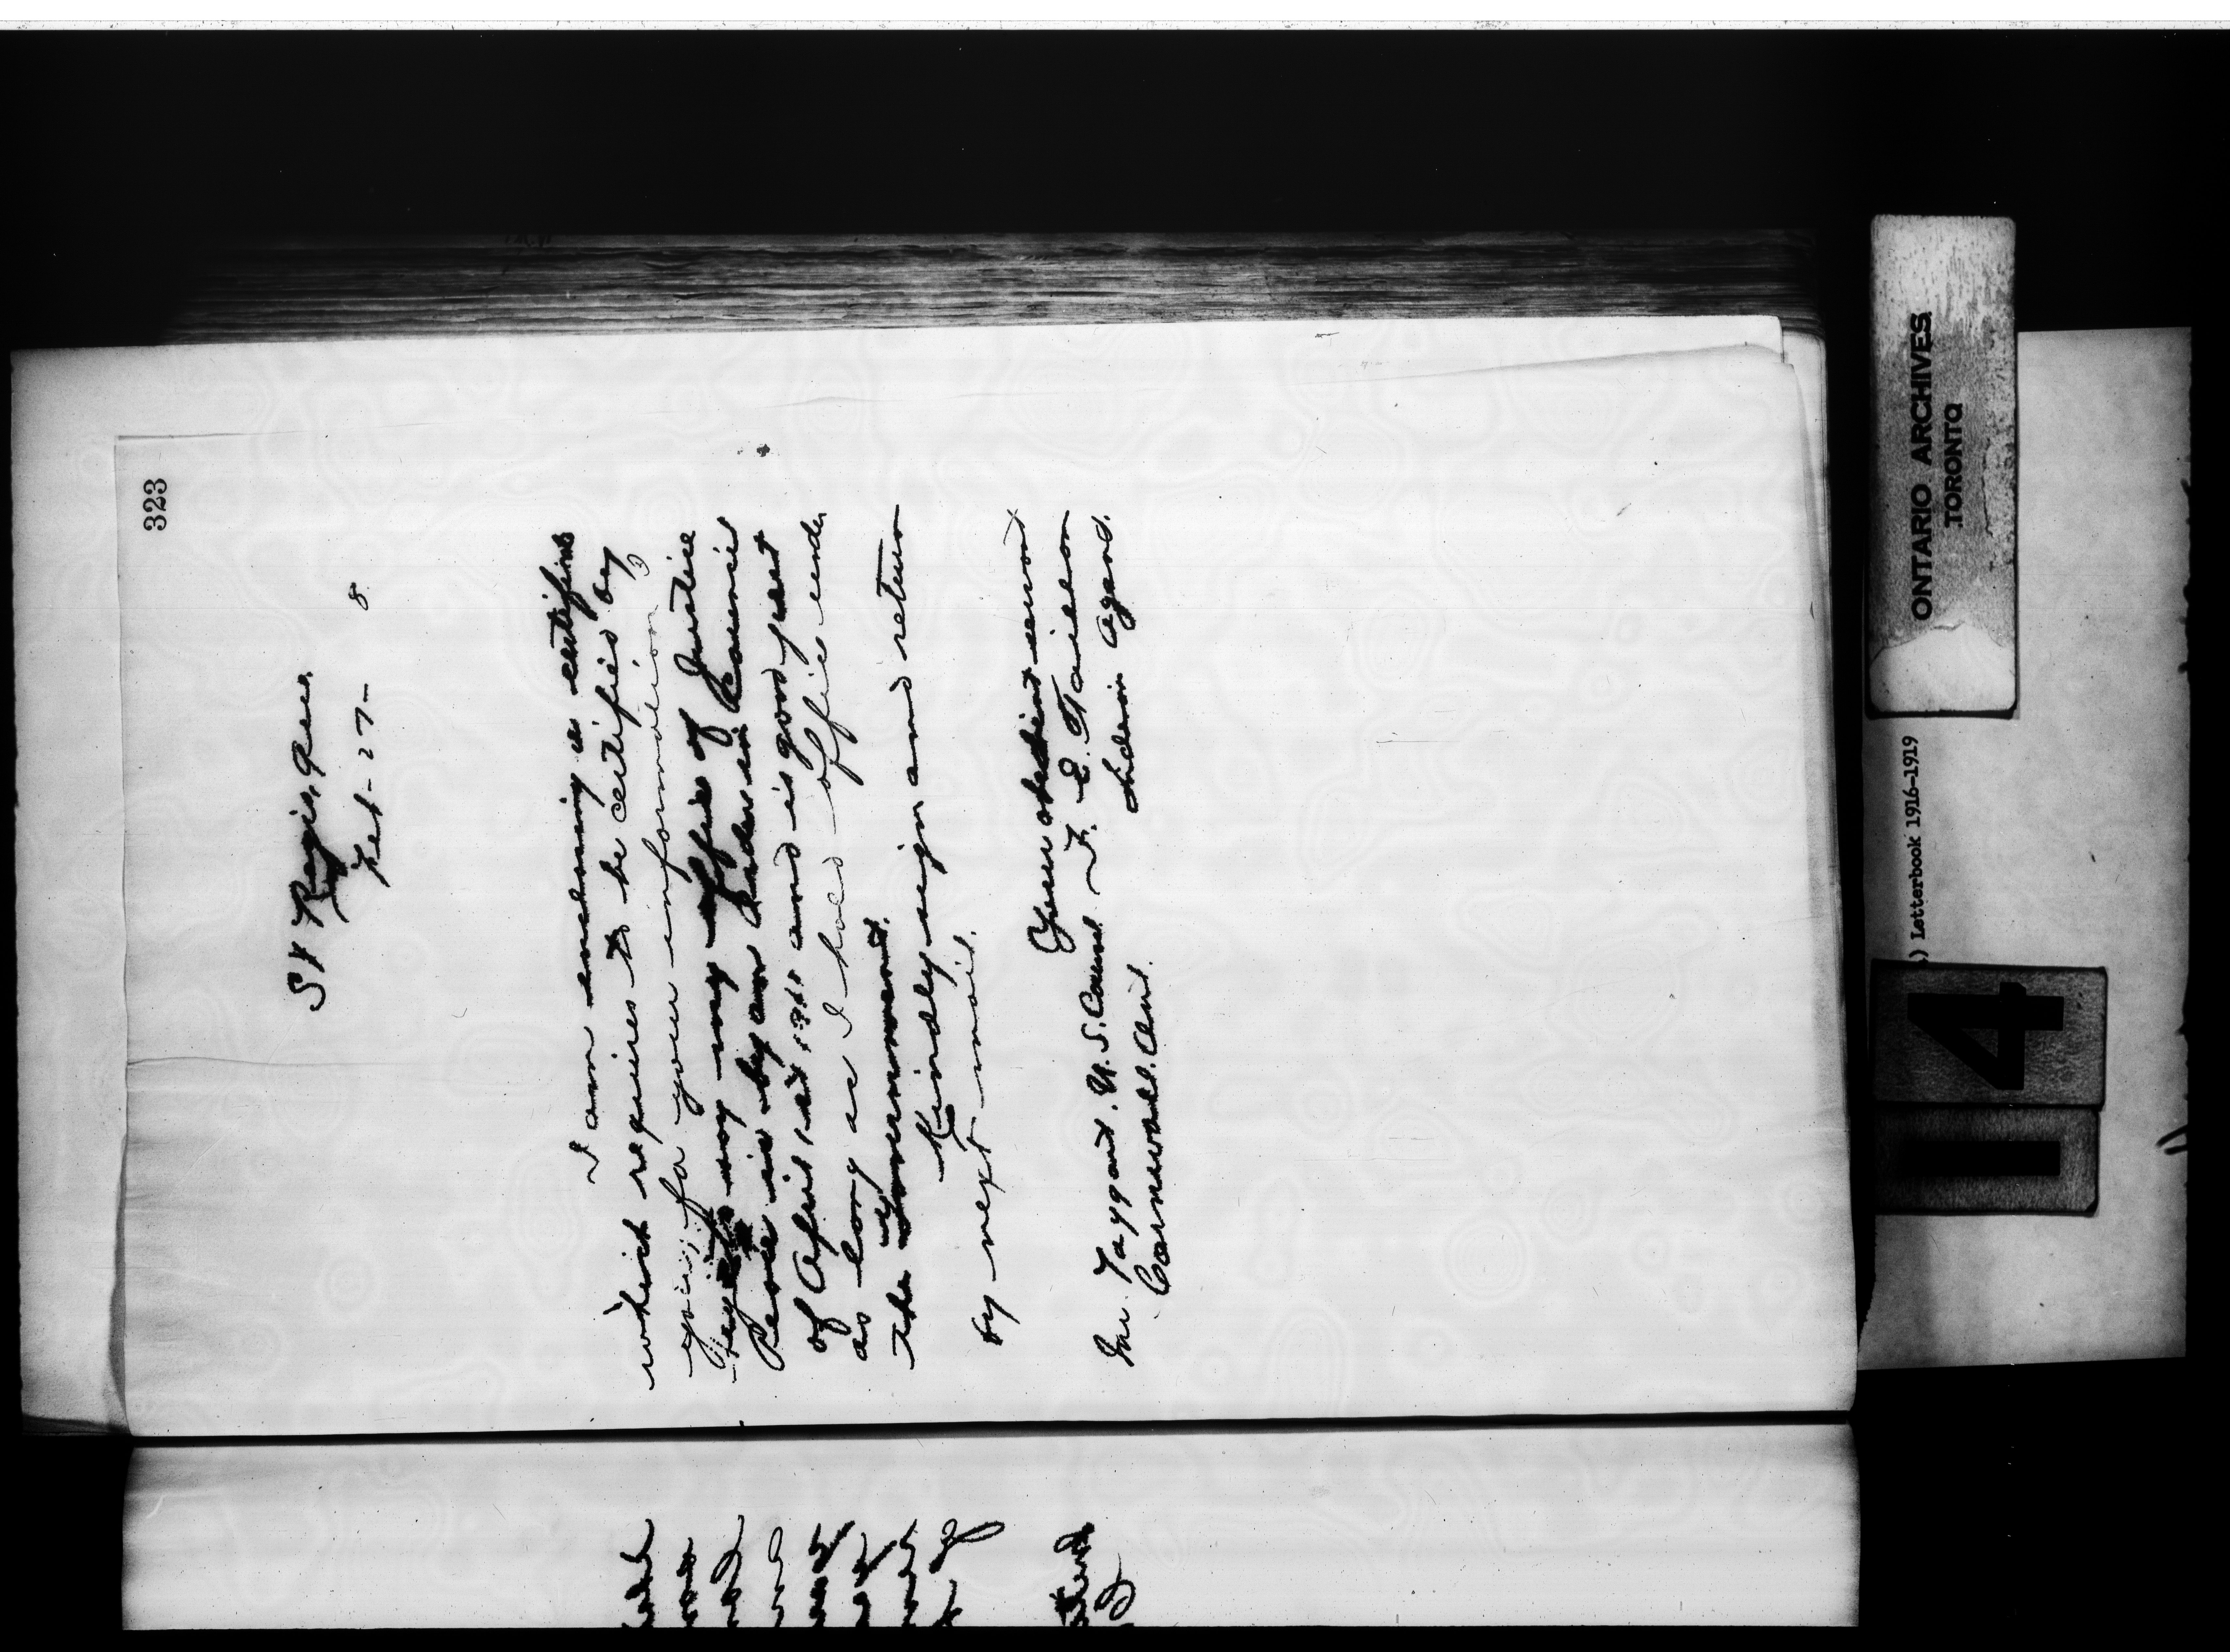 323
St Regis, Que.
Feb- 27- 8
I am enclosing a certificate
which requires to be certified by
you, for your information
regards my office of Justice
Peace is by an Order in Council
of April 1st and is good just
as long as I hold office under
the Government.
Kindly sign and return
by next mail.
Your obedient servant
F. E. Taillon
Indian Agent.
Mr. Taggart. U.S. Consul
Cornwall. Ont.
ONTARIO ARCHIVES
TORONTO
) Letterbook 1916-1919
14